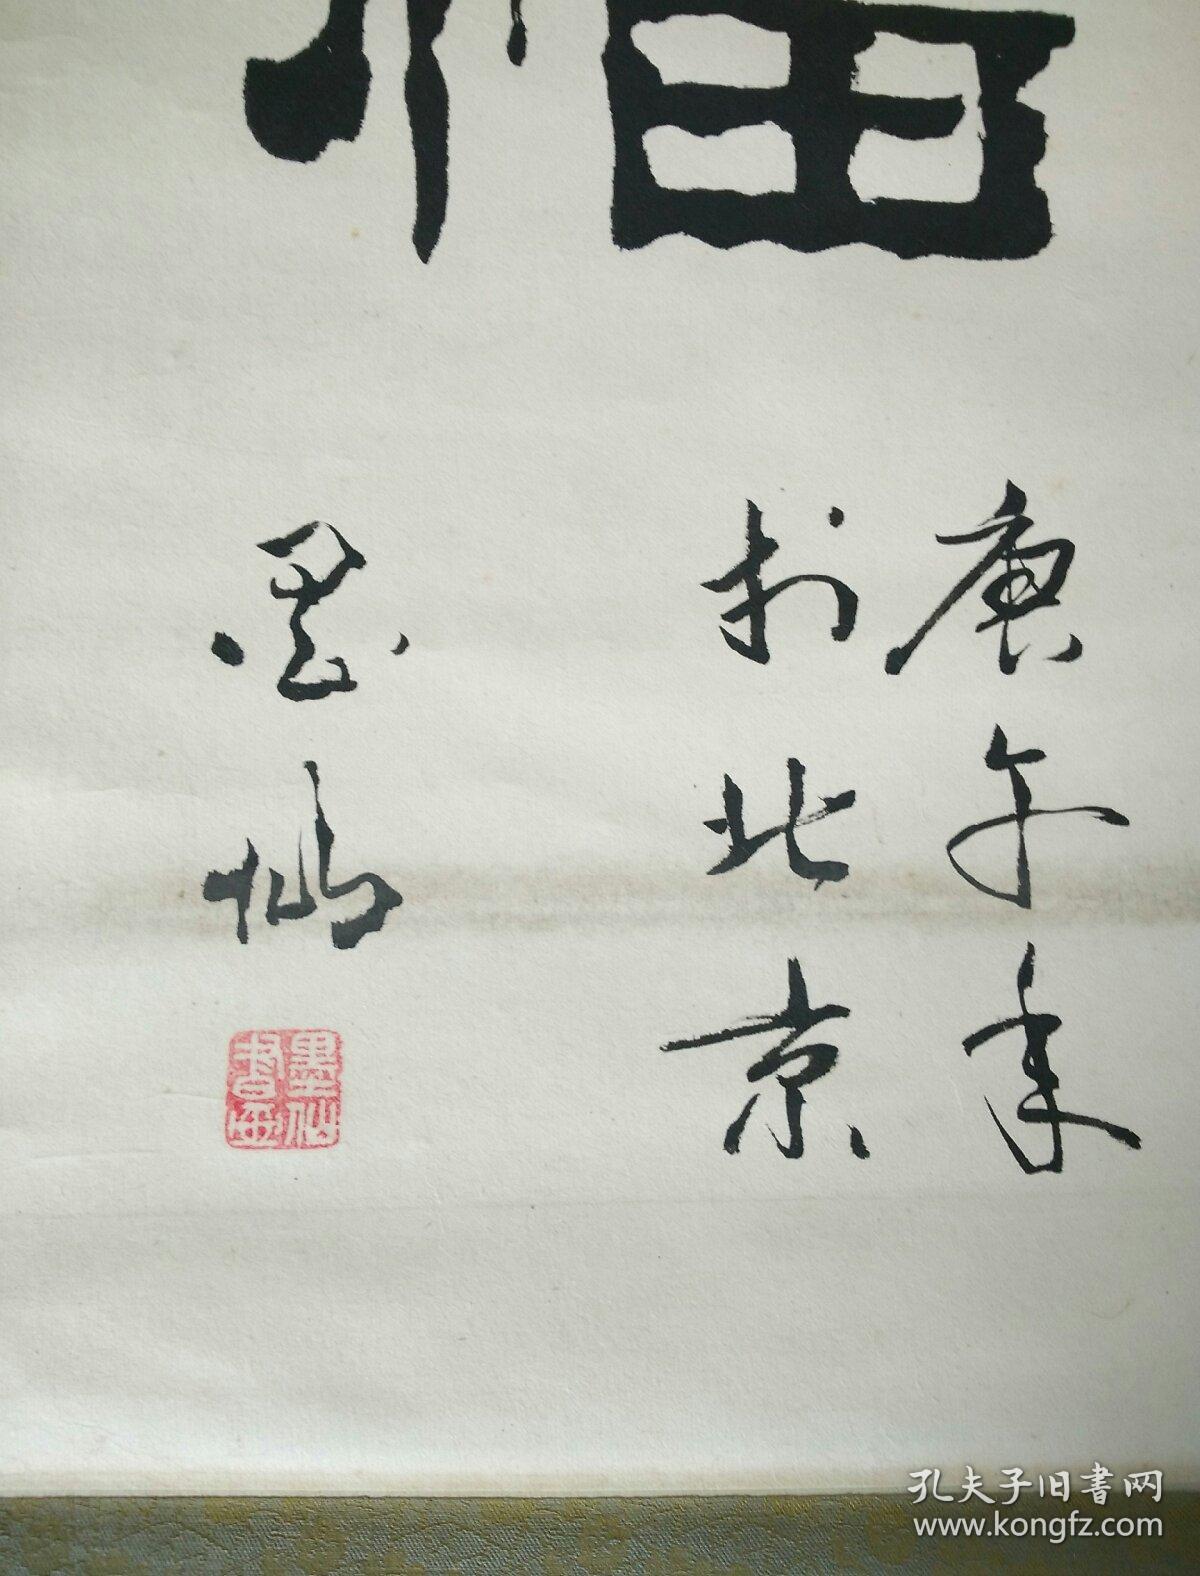 福
庚午年
于北京
墨仙
墨仙書画
孔夫子旧書网
www.kongfz.com